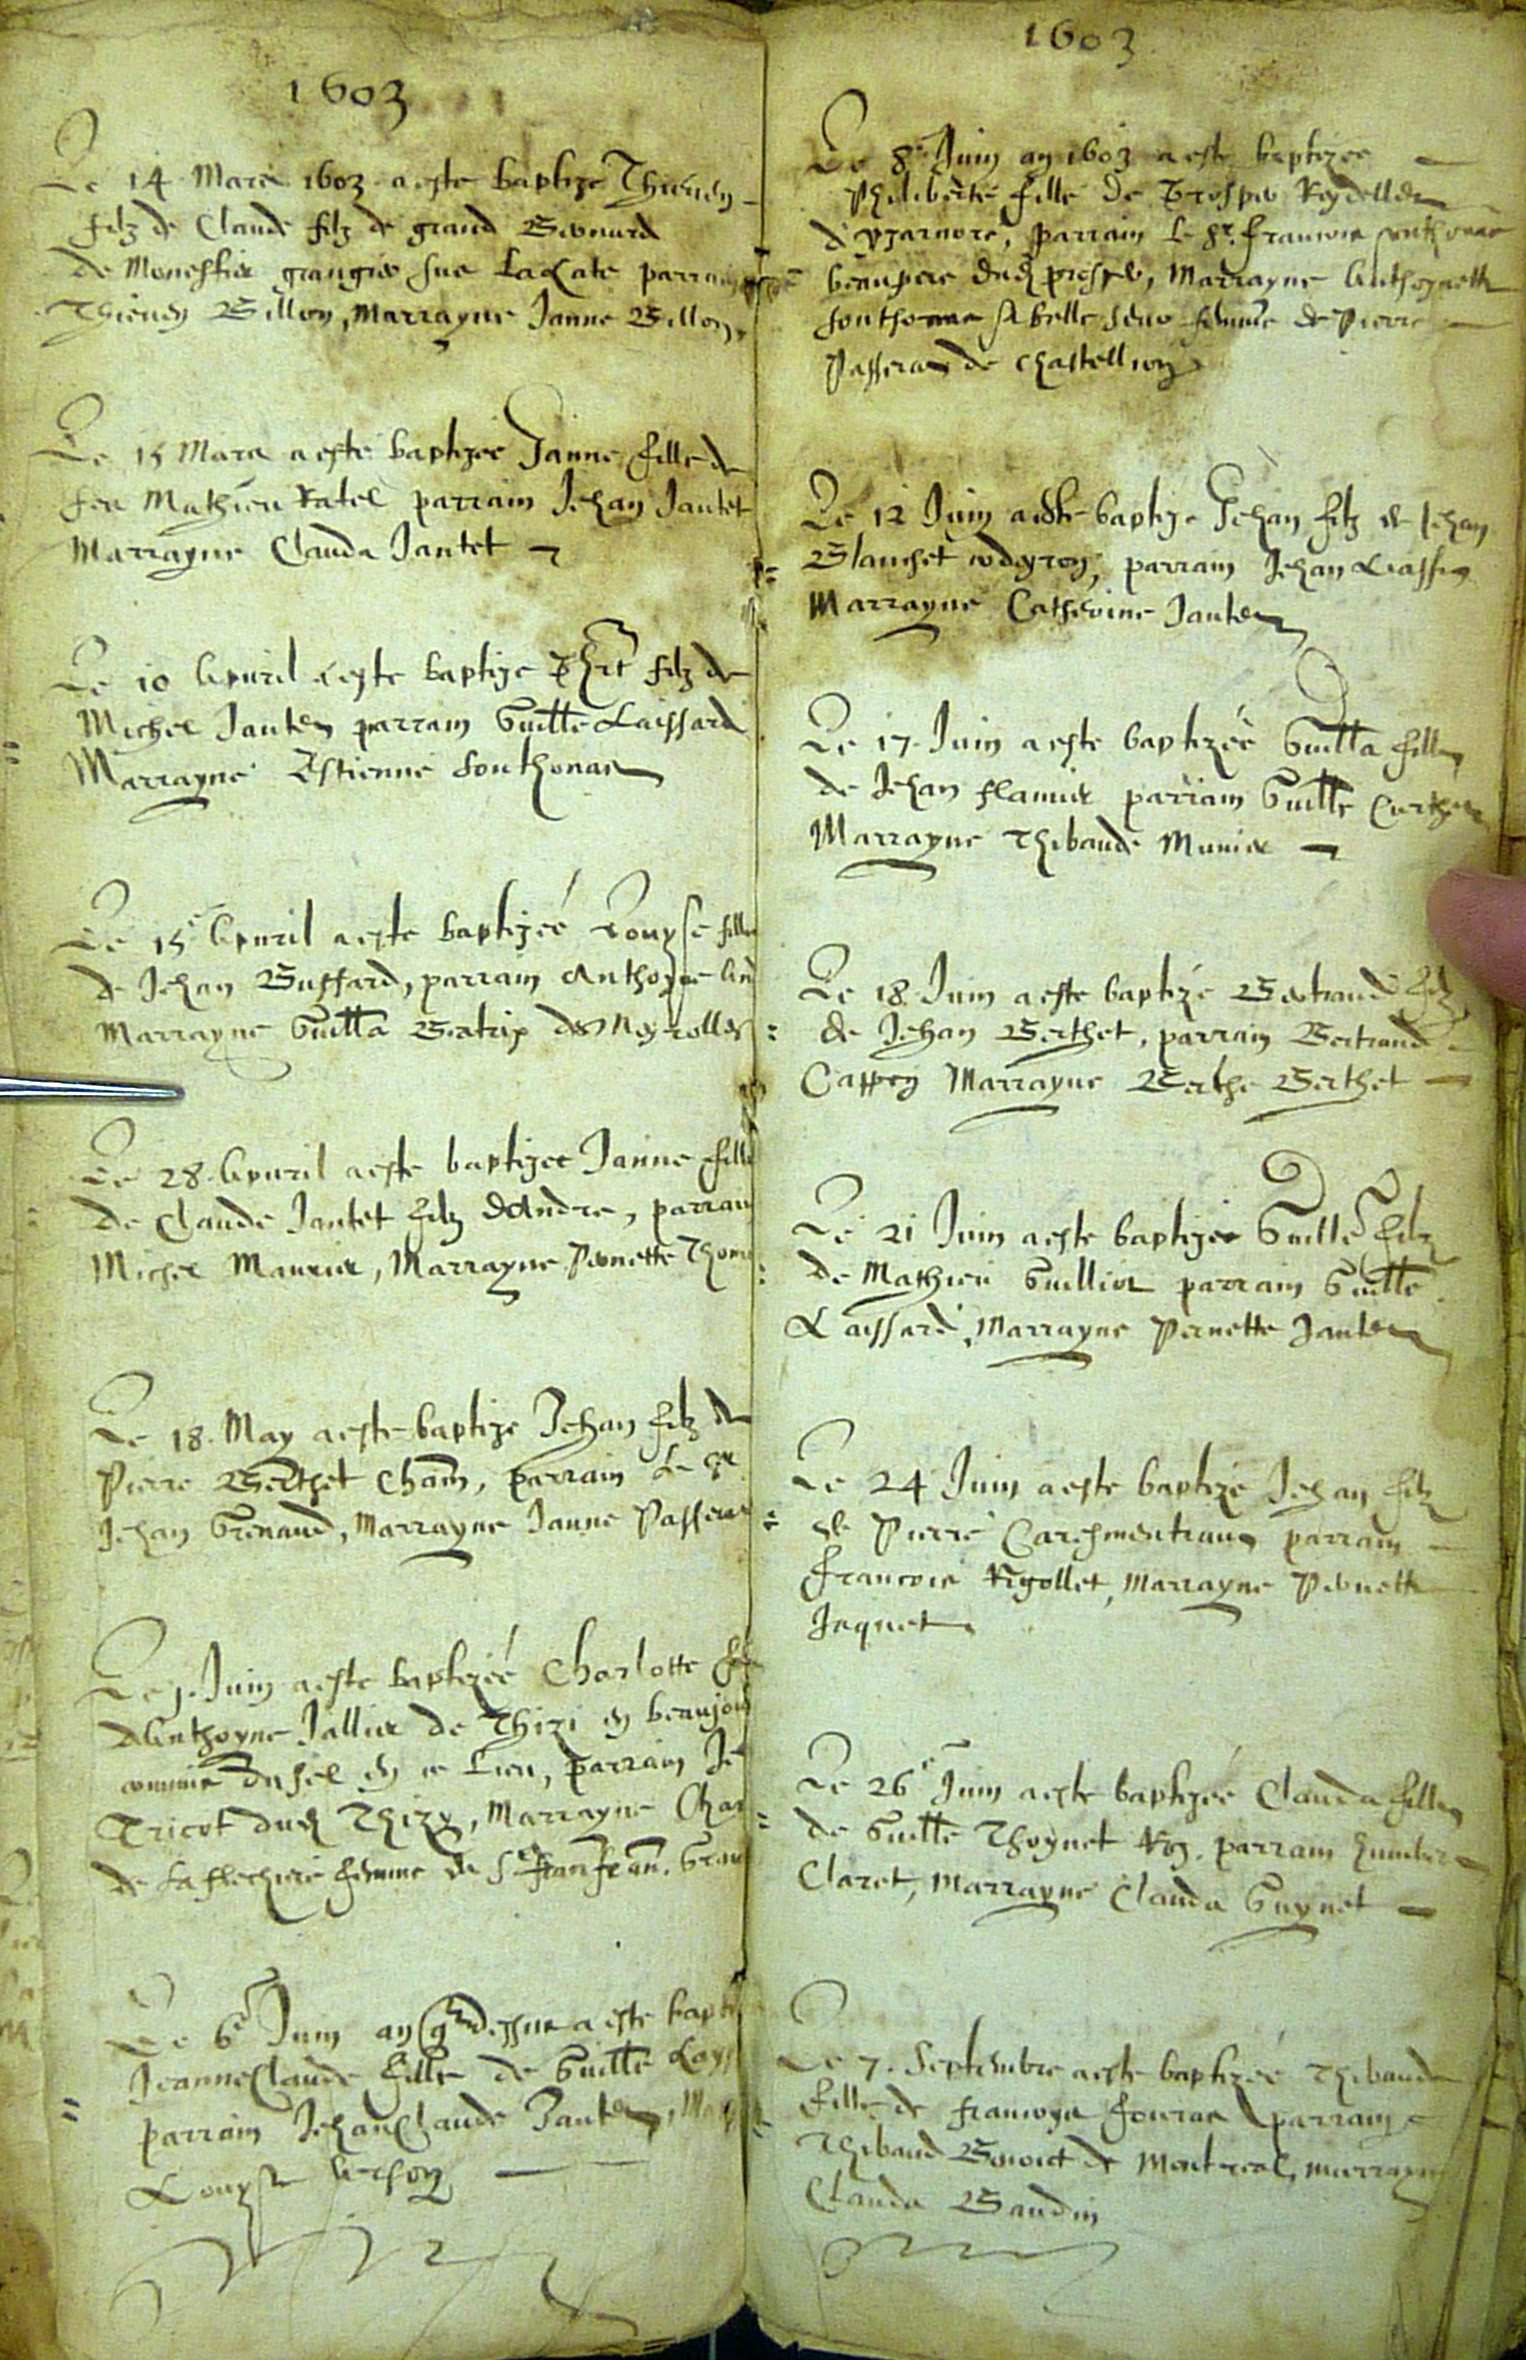 1603
Le 14 Mars 1603 a este baptize Thieuen
filz de Claude filz de grand Bernard
de Monestier grangier sus LaLate parrain
Thieuen Billion, Marrayne Janne Billon,
Le 15 Mars a esté baptizée Janne fille de
feu Mathieu Ratel parrain Jehan Jantet
Marrayne Clauda Jantet
Le 10 Apuril a este baptize filz de
Michel Janten parrain Guille Laissard
Marrayne Estienne Fonthonas
Le 15e Apuril a este baptizéé Louyse fille
de Jehan Buffard, parrain Anthoyne
Marrayne Guilla Beatrix des Neyrolles
Le 28 Apuril a este baptizee Janne fille
de Claude Jantet filz dAndre, parrain
Michel Maurier, Marrayne Pernette
Le 18. May a este baptize Jehan filz de
Pierre Berthet Cham, parrain Le Sr
Jehan Grenaud, Marrayne Janne Passerat
Le j. Juin a este baptizéé Charlotte
dAnthoyne Jallier de Thizi en beaujou
commis du sel en ce Lieu, parrain
Tricot dud Thizy, Marrayne Char
de Laflechiere femme de Sr fran.
Le 6e Juin an dessus a este bapt
JeanneClaude fille de Guille Lays
parrain JehanClaude Janten,
Louyse
1603
Le 8e Juin an 1603 a este baptizee
Philiberte fille de Prosper Reydellet
d'yzarnore, parrain Le Sr. francois
beaupere dud prosper, Marrayne Anthoynette
fonthonas femme de Pierre
Passerat de chastellion
Le 12 Juin a este baptize Jehan filz de Jehan
Blanchet parrain Jehan
Marrayne Catherine Janten
Le 17. Juin a este baptizéé Guilla fille
de Jehan flamier parrain Guille
Marrayne Thibaude Munier
Le 18 Juin a este baptizé Bertrand filz
de Jehan Berthet, parrain Bertrand
Cappon Marrayne Berthe Berthet
Le 21 Juin a este baptizee Guille filz
de Mathieu Guillion parrain Guille
Laissard, Marrayne Pernette Janten
Le 24 Juin a este baptizé Jehan filz
de Pierre Caresmentrant parrain
francois Rigollet, Marrayne Pernette
Jaquet
Le 26e Juin a este baptizéé Clauda fille
de Guille Thoynet Roy, parrain humbert
Claret, Marrayne Clauda Guynet
Le 7. Septembre a este baptizéé Thibaude
fille de francoys fouras parrain
Thibaud Benoict de Montreal, marrayne
Clauda Gaudin